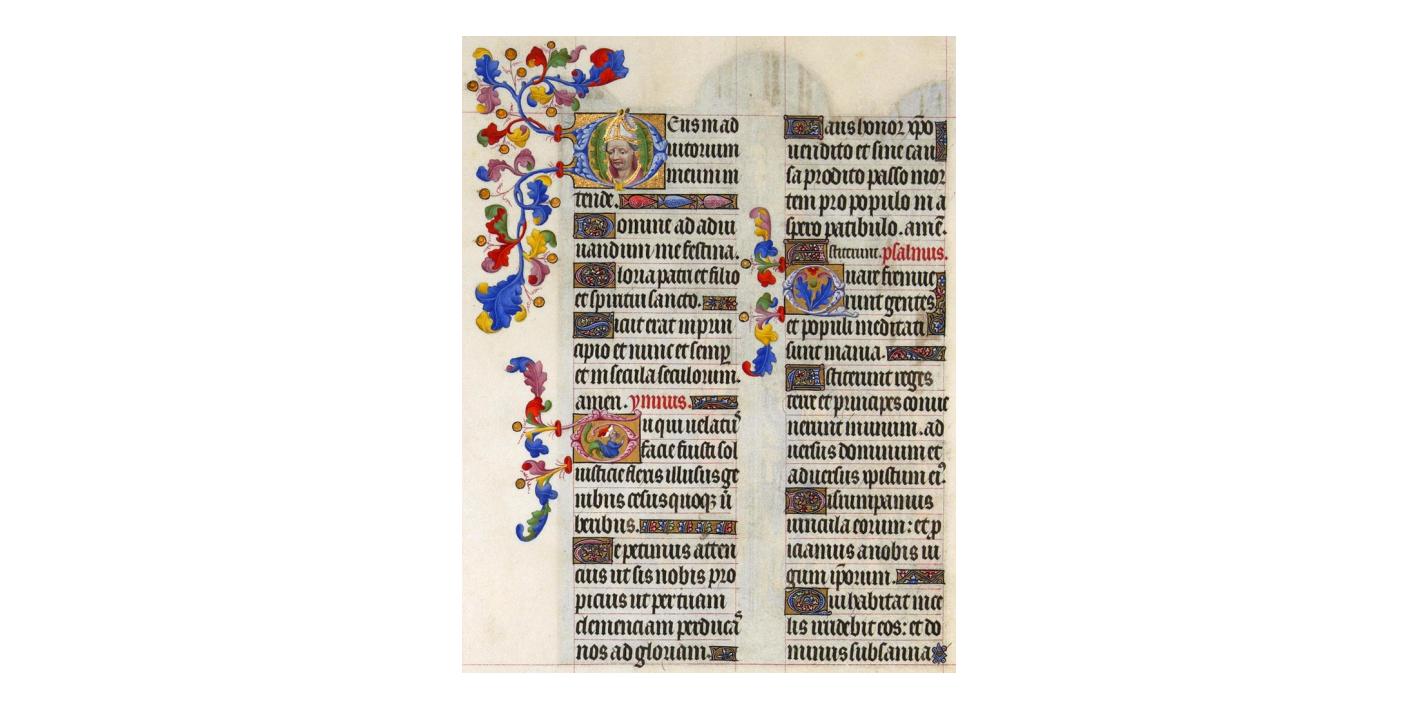 Deus in ad
iutorium
meum in
tende.
Domine ad adiu
uandum me festina.
Gloria patri et filio
et spiritui sancto.
Sicut erat in prin
cipio et nunc et semp
et in secula seculorum.
amen. ymnus.
Qui uelatus
facie fuisti sol
iusticie flexis illusus ge
nibus cesus quoqꝫ ũ
beribus.
Te petimus atten
cius ut sis nobis pro
picius ut per tuam
clemenciam perducaˢ
nos ad gloriam.
Laus honor xp̃o
uendito et sine cau
sa prodito passo mor
tem pro populo in a
spero patibulo. amẽ.
Astiterunt. psalmus.
Quare fremue
runt gentes
et populi meditati
sunt inania.
Astiterunt reges
terre et principes conue
nerunt in unum. ad
uersus dominum et
aduersus xpistum eiꝰ.
Disrumpamus
uincula eorum: et p
iciamus a nobis iu
gum ip̃orum.
Qui habitat in ce
lis irridebit eos: et do
minus subsanna